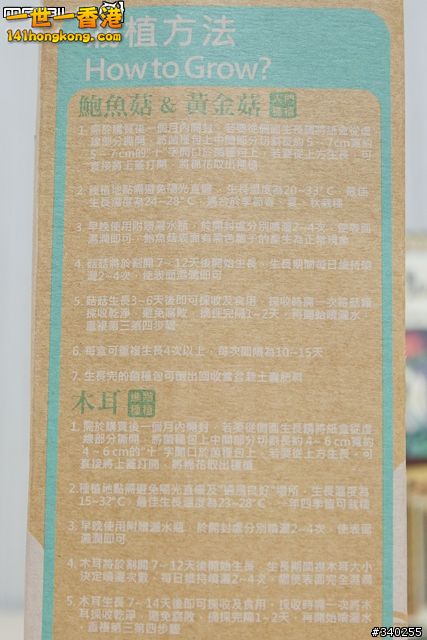 一世一香港
141hongkong.com
種植方法
How to Grow?
鮑魚菇 & 黃金菇
1. 需於購買後一個月內開封,若要從側面生長請將紙盒從虛
線部分撕開,將菌種包上中間部分切割長約 5 ~ 7cm的寬約
5 ~ 7cm的"十"字開口於菌種包上,若要從上方生長,可
直接將上蓋打開,將棉花取出種植
2. 種植地點需避免陽光直曬,生長溫度為20~33°C,最佳
生長溫度為24~28°C,
3. 早晚使用附贈灑水瓶,於開封處分別噴灑2~4次,使表面
濕潤即可,鮑魚菇表面有黑色
的產生為正常現象
4. 菇菇將於割開 7 ~ 12天後開始生長,生長期間每日維持噴
灑2~4次,使表面濕潤即可
5. 菇菇生長3~6天後即可採收及食用,採收時需一次將菇
採收乾淨,避免腐敗,摘採完隔1~2天,再開始噴灑水,
重複第三第四步驟
6. 每盒可重複生長4次以上,每次間隔為10~15天
7. 生長完的菌種包可倒出回收當台栽土壤肥料
木耳
進階
種植
1. 需於購買後一個月內開封,若要從側面生長請將紙盒從虛
線部分撕開,將菌種包上中間部分切割長約4 ~ 6 cm寬約
4 ~ 6 cm的"十"字開口於菌種包上,若要從上方生長,可
直接將上蓋打開,將棉花取出種植
2. 種植地點需避免陽光直曬及"通風良好"場所,生長溫度為
15~32°C,最佳生長溫度為23~28°C,一年四季皆可栽種
3. 早晚使用附贈灑水瓶,於開封處分別噴灑2~4次,使表面
濕潤即可
4. 木耳將於割開 7 ~ 12天後開始生長,生長期間視木耳大小
決定噴灑次數,每日維持噴灑2~4次,需使表面完全濕潤
5. 木耳生長7~ 14天後即可採收及食用,採收時需一次將木
耳採收乾淨,避免腐敗,摘採完隔1~ 2天,再開始噴灑水
,重複第三第四步驟
#340255